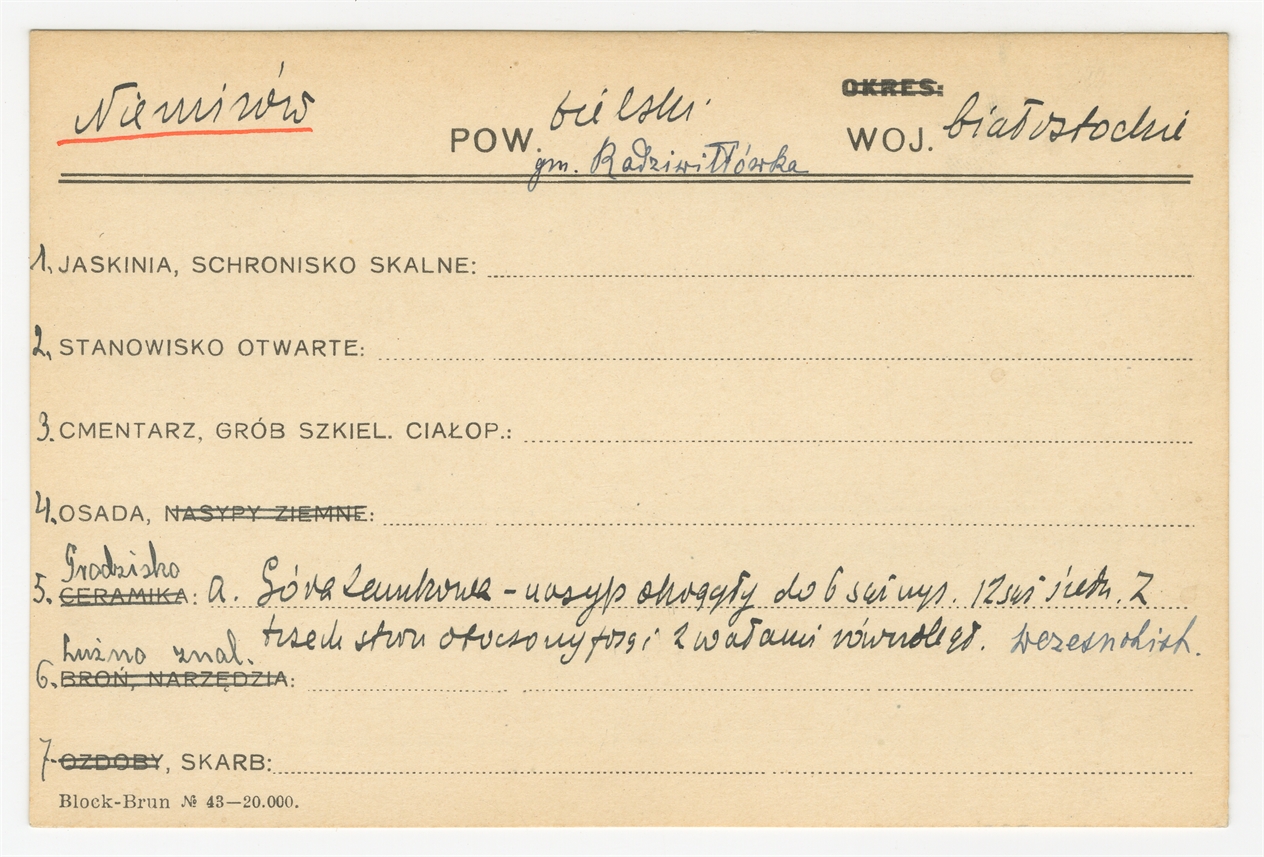 Niemirów POW. bielski WOJ. białostockie
OKRES:
gm. Radziwiłłówka
1. JASKINIA, SCHRONISKO SKALNE:
2. STANOWISKO OTWARTE:
3. CMENTARZ, GRÓB SZKIEL. CIAŁOP.:
4. OSADA, NASYPY ZIEMNE:
Grodzisko
5. CERAMIKA: a. Góra Zamkowa - nasyp okrągły do 6 sąż wys. 12 sąż śred. Z
trzech stron otoczony fosą i 2 wałami równoległ. wczesnohist.
Luźno znal.
6. BROŃ, NARZĘDZIA:
7 OZDOBY, SKARB:
Block-Brun № 43—20.000.